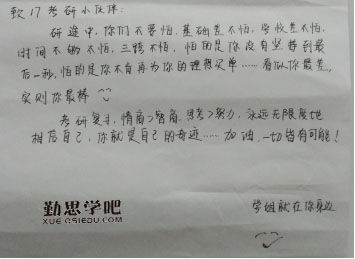 致17考研小伙伴:
研途中,你们不要怕,基础差不怕,学校差不怕,
时间不够不怕,三跨不怕,怕的是你没有坚持到最
后一秒,怕的是你不肯再为你的理想买单……看似你最差,
实则你最棒
考研复习,情商>智商,思考>努力,永远无限度地
相信自己,你就是自己的奇迹……加油,一切皆有可能!
勤思学吧
XUE.QSIEDU.COM
学姐就在你身边